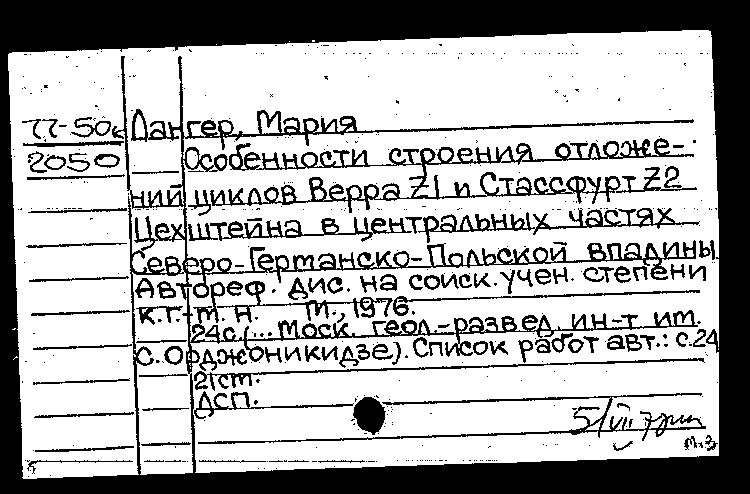 77-50к Лангер, Мария
2050 Особенности строения отложе-
ний циклов Верра Z1 и Стассфурт Z2
Цехштейна в центральных частях
Северо-Германско-Польской впадины
Автореф. дис. на соиск. учен. степени
к.г.-м.н. М., 1976.
24с.(... Моск. геол.-развед. ин-т им.
С. Орджоникидзе). Список работ авт.: с.24
21 ст.
ДСП.
5/VII
М-3